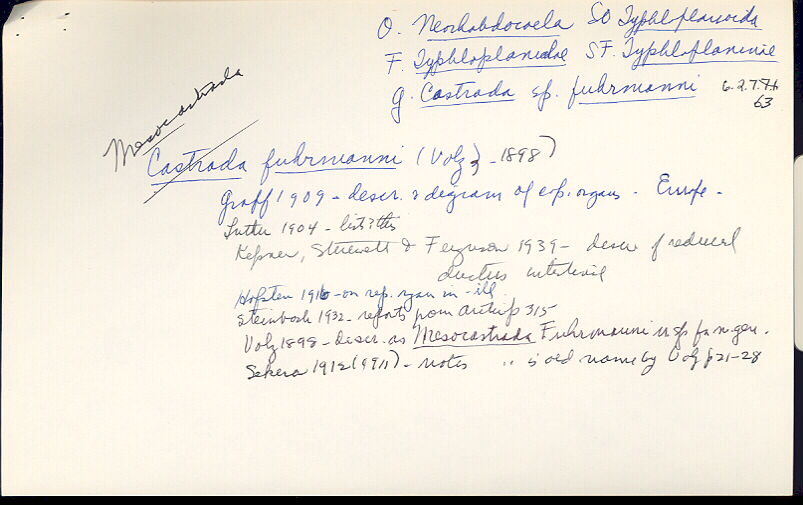 O. Neorhabdocoela SO Typhloplanoida
F. Typhloplanidae SF. Typhloplaninae
g. Castrada sp. fuhrmanni 6.2.7.7.1
63
Mesocastrada
Castrada fuhrmanni (Volz, 1898)
Graff 1909 - descr. & diagram of cop. organs - Europe -
Luther 1904 - lists this
Kepner, Stirewalt & Ferguson 1939 - descr of reduced
ductus
Hofsten 1916 - on rep. organ in - ill
Steinbock 1932 - reports from 315
Volz 1898 - descr. as Mesocastrada Fuhrmanni n. sp. n. gen.
Sekera 1912 (1911) - notes " 's old name by Volz p 21-28